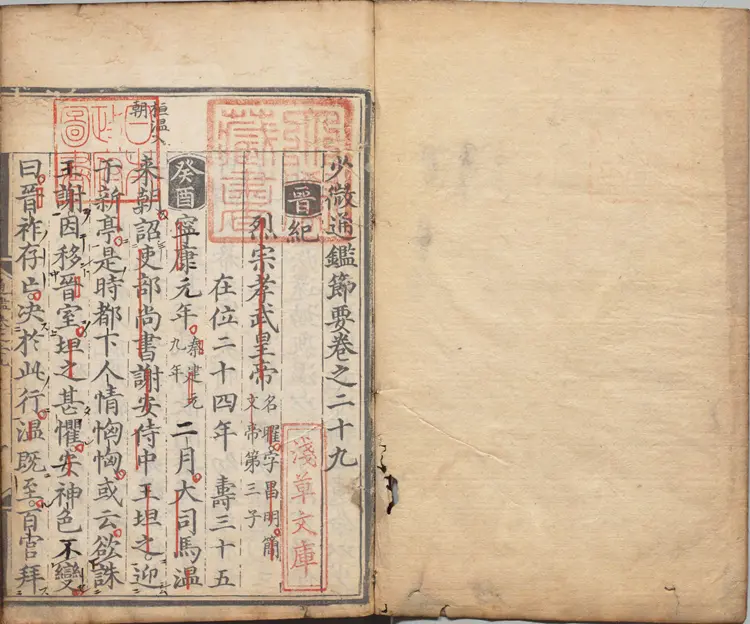 少微通鑑節要卷之二十九
晉紀
烈宗孝武皇帝 名曜字昌明簡
文帝第三子
在位二十四年 壽三十五
癸酉 寧康元年 秦建元
九年 二月大司馬溫
來朝詔吏部尚書謝安侍中王坦之迎
于新亭是時都下人情恟恟或云欲誅
王謝因移晉室坦之甚懼安神色不變
曰晉祚存亡决於此行溫既至百官拜
桓溫入
朝
淺草文庫
藏書
圖書